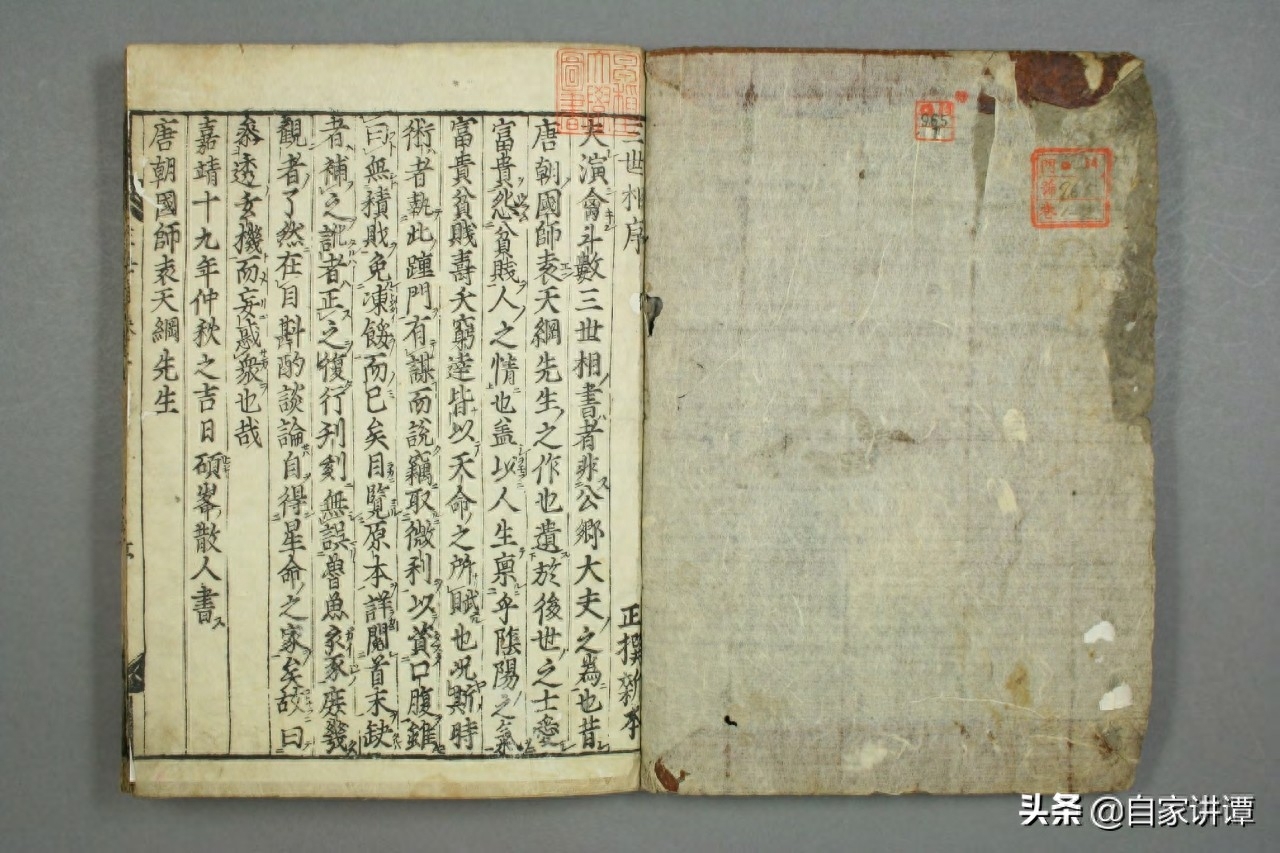 三世相序
正撰新本
夫演禽斗數三世相書者非公卿大夫之為也昔
唐朝國師袁天綱先生之作也遺於後世之士愛
富貴怨貧賤人之情也盖以人生禀乎陰陽之氣
富貴貧賤壽夭窮達皆以天命之所賦也况斯時
術者執此踵門有謀而說竊取微利以資口腹雖
曰無積敗免凍餒而已矣目覽原本詳閱首末缺
者補之訛者正之復行刋刻無誤魯魚亥豕庶㡬
觀者了然在目斟酌談論自得星命之家矣故曰
叅透玄機而妄惑衆也哉
嘉靖十九年仲秋之吉日碩峯散人書
唐朝國師袁天綱先生
965
頭条 @自家讲谭